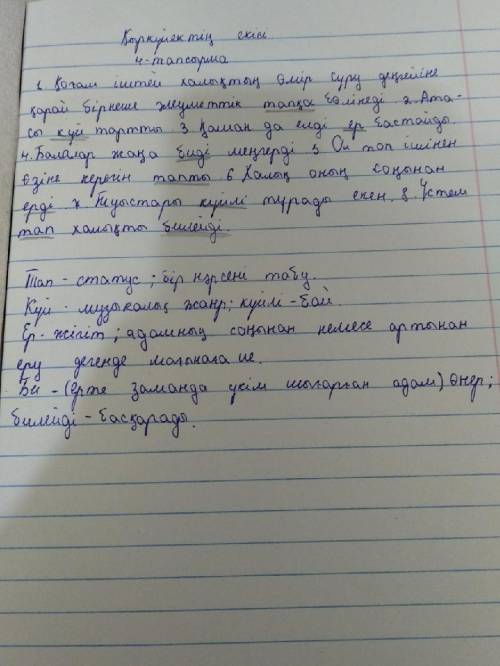 Қоркүйектің екісі
4-тапсырма
1. Қоғам іштей халықтың өмір сүру деңгейіне
қарай бірнеше әлеуметтік тапқа бөлінеді 2. Ата-
сы күй тартты 3 Қашан да елді ер бастайды
4. Балалар жаңа биді меңгерді 5 Ол топ ішінен
өзіне керегін тапты 6 Халық оның соңынан
ерді 7. Туыстары күйлі тұрады екен. 8. Үстем
тап халықты билейді.
Тап - статус; бір нәрсені табу.
Күй - музыкалық жанр; күйлі - бай.
Ер - жігіт; адамның соңынан немесе артынан
еру дегенде мағынаға ие.
Би - (ерте заманда үкім шығарған адам) өнер;
билейді - басқарады.